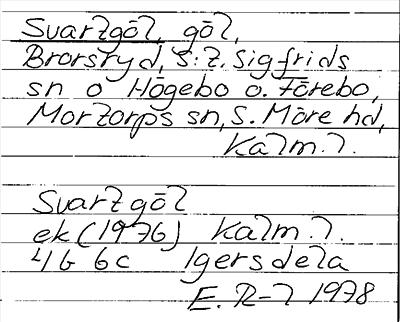 Svartgöl, göl,
Brorsryd, S:t Sigfrids
sn o Högebo o. Förebo,
Mortorps sn, S. Möre hd,
Kalm. l.
Svartgöl
ek (1976) Kalm. l.
4G 6c Igersdela
E. R-l 1978